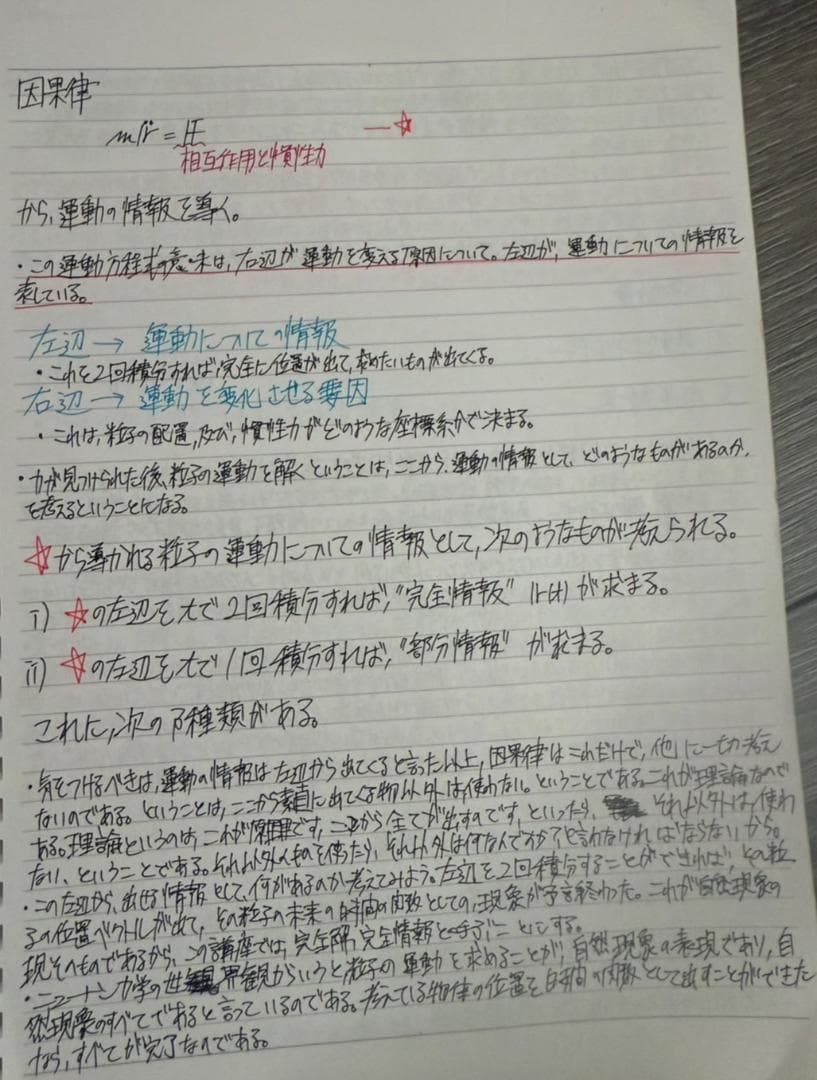 因果律
m𝕣̈ = 𝔽 ー☆
相互作用と慣性力
から、運動の情報を導く。
・この運動方程式の意味は、右辺が運動を変える原因について。左辺が、運動についての情報を
表している。
左辺 → 運動についての情報
・これを2回積分すれば、完全に位置が出て、求めたいものが出てくる。
右辺 → 運動を変化させる要因
・これは、粒子の配置、及び、慣性力がどのような座標系かで決まる。
・力が見つけられた後、粒子の運動を解くということは、ここから、運動の情報として、どのようなものがあるのか、
を考えるということになる。
☆から導かれる粒子の運動についての情報として、次のようなものが考えられる。
i) ☆の左辺をtで2回積分すれば、"完全情報" 𝕣(t)が求まる。
ii) ☆の左辺をtで1回積分すれば、"部分情報" が求まる。
これに、次の3種類がある。
・気をつけるべきは、運動の情報は左辺から出てくると言った以上、因果律はこれだけで、他に一切考え
ないのである。ということは、ここから素直に出てくる物以外は使わない。ということである。これが理論なので
ある。理論というのは、これが原理です、こっから全てが出すのです、といったら、それ以外は使わ
ない、ということである。それ以外のものを使ったら、それ以外は何なんですか?と言わなければならないから。
・この左辺から、出せる情報として、何があるのか考えてみよう。左辺を2回積分することができれば、その粒
子の位置ベクトルが出て、その粒子の未来の時間の関数としての、現象が予言終わった。これが自然現象の
現そのものであるから、この講座では、完全解、完全情報と呼ぶことにする。
・ニュートン力学の世界観からいうと粒子の運動を求めることが、自然現象の表現であり、自
然現象のすべてであると言っているのである。考えている物体の位置を時間の関数として出すことができた
なら、すべてが完了なのである。